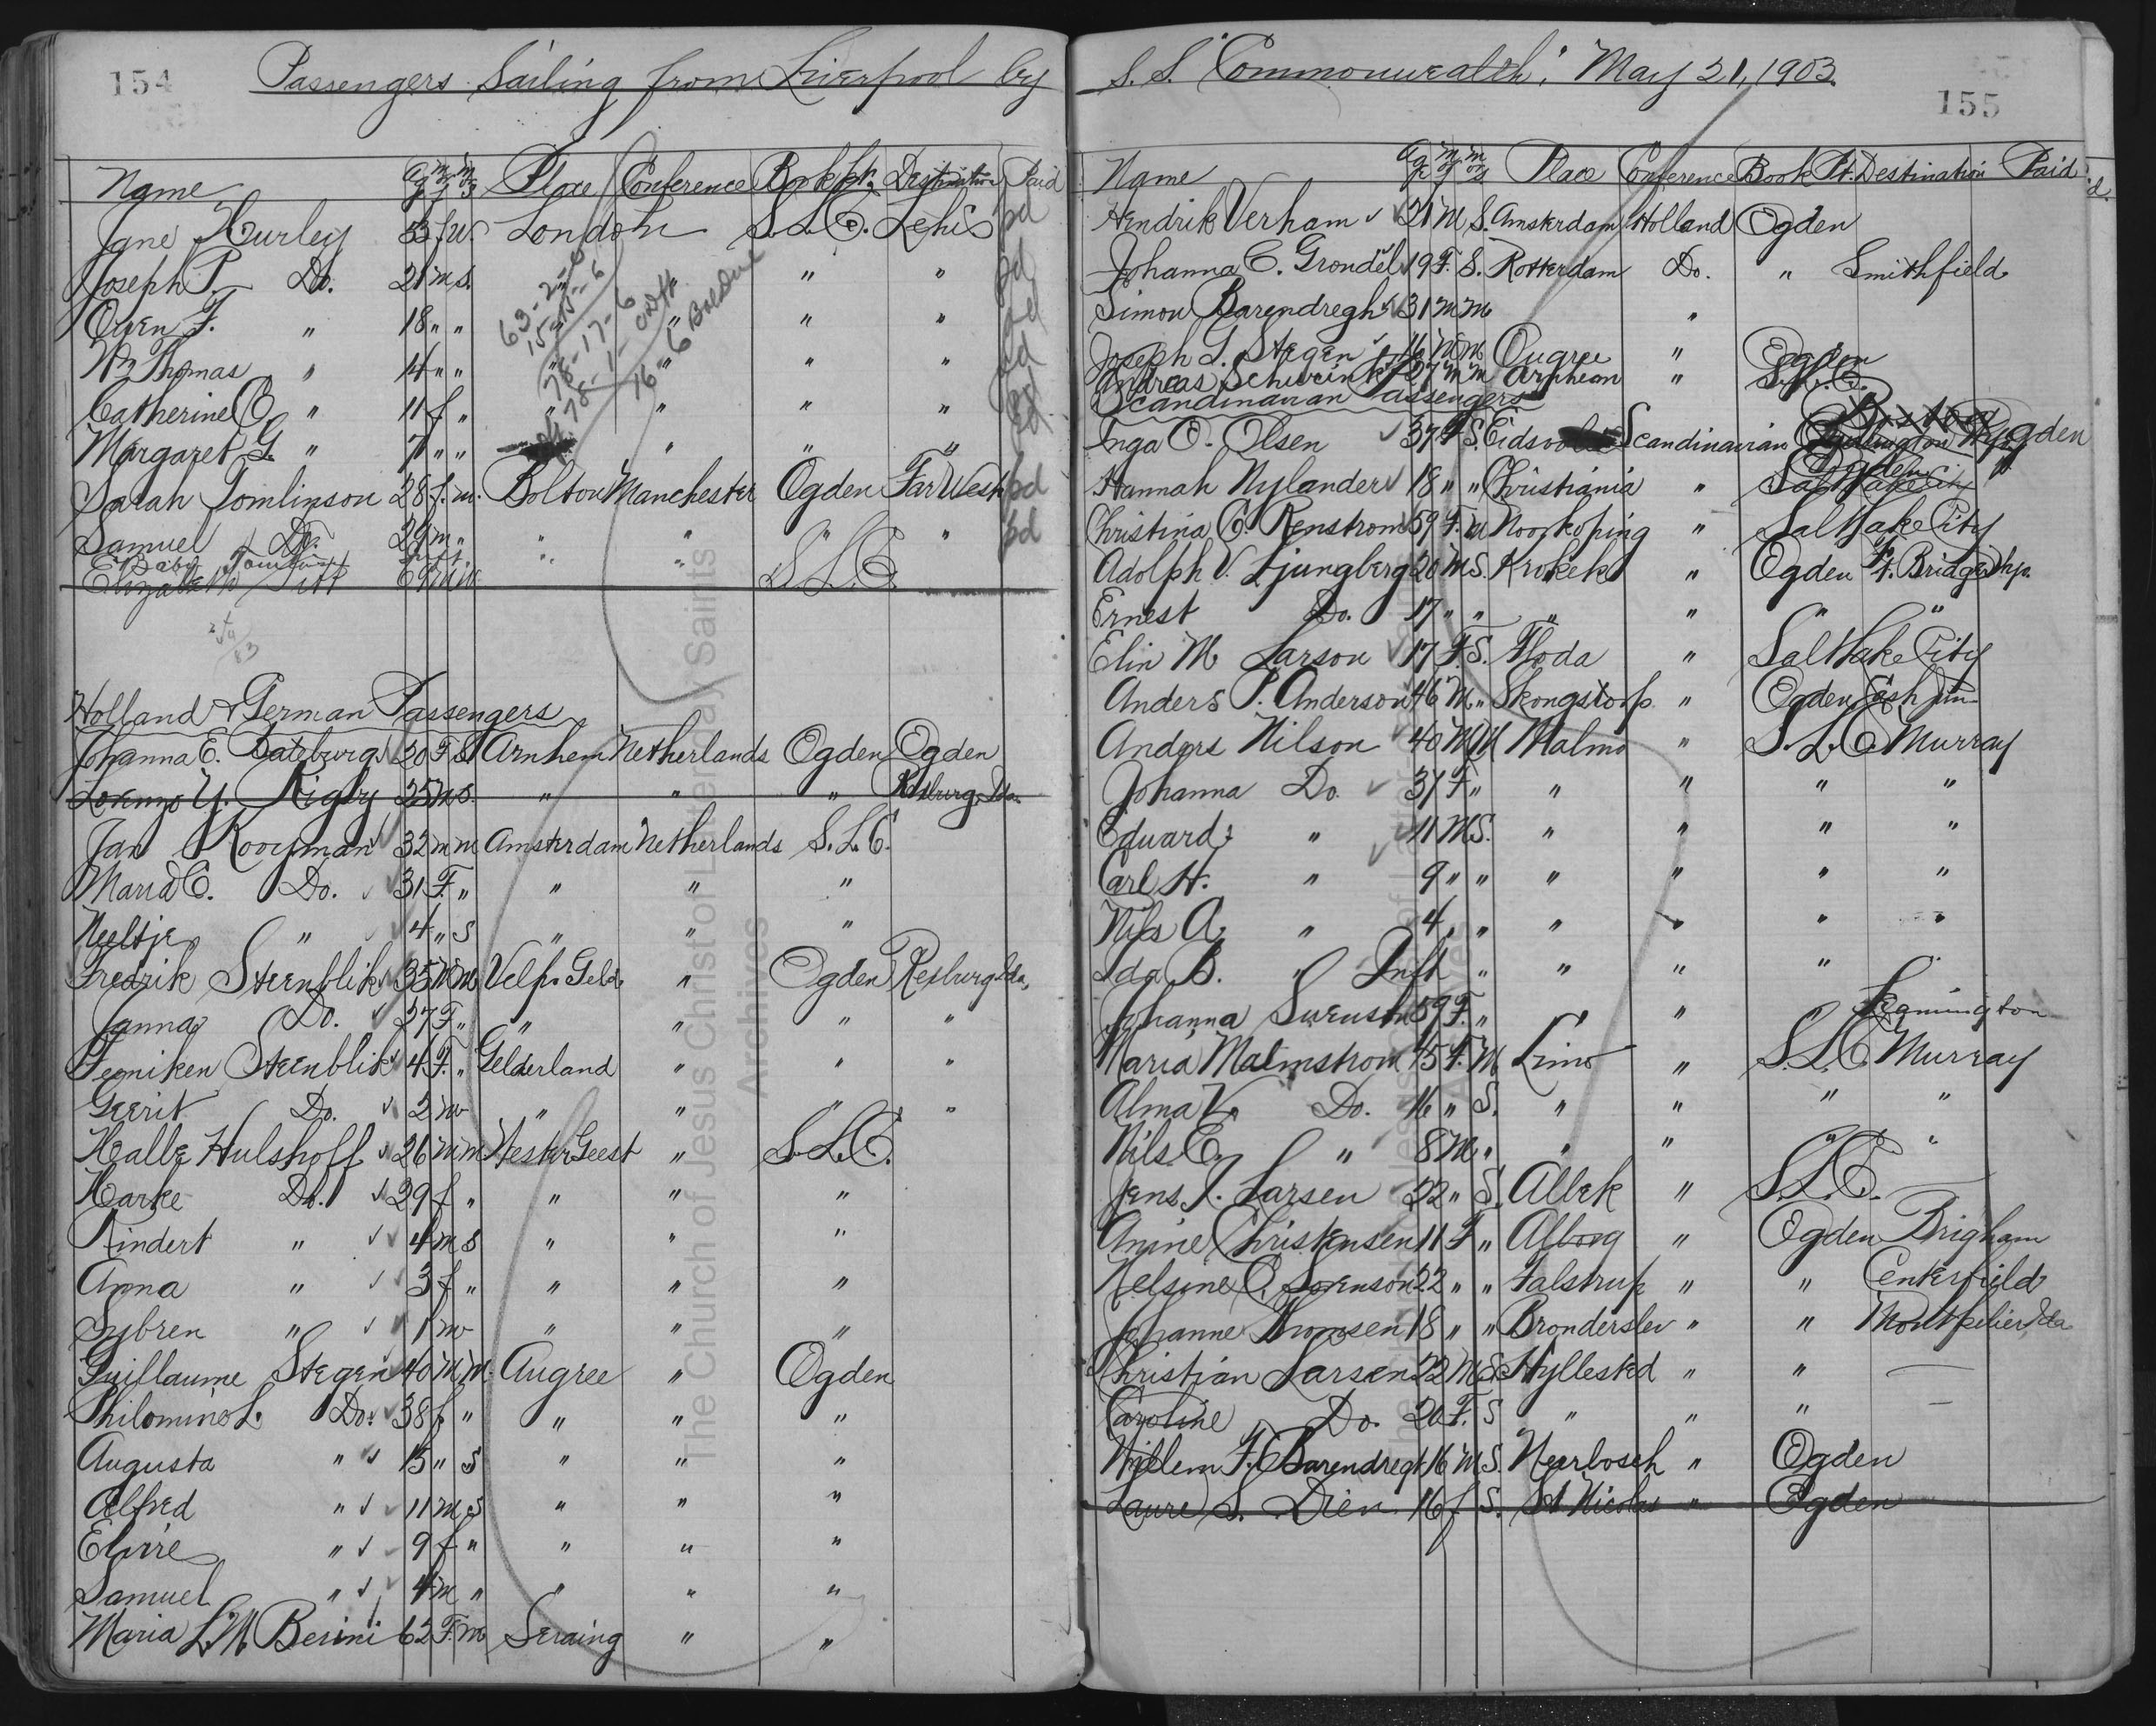 154
Passengers Sailing from Liverpool by
Name Age M or F M or S Place Conference Book Pt. Destination Paid
Jane Hurley 53 f. w. London S.L.C. Lehi pd
Joseph P. Do. 21 m s. " " " pd
Owen F. " 18 " " " " " " pd
Wm Thomas " 14 " " " " " " pd
Catherine E. " 11 f " " " " " pd
Margaret G. " 7 " " " " " pd
Sarah Tomlinson 28 f. m. Bolton Manchester Ogden Far West pd
Samuel Do. 29 m " " " " pd
Baby Tomlinson Inft
Elizabeth Pitt 69 " " S.L.C.
63-2-0
15-15-6
78-17-6
78-1-
16-6 Balance
Holland & German Passengers
Johanna E. Batzburg 20 F S Arnhem Netherlands Ogden Ogden
Lorenzo Y. Rigby 25 m s. " " " Rexburg, Ida.
Jan Kooyman 32 m m Amsterdam Netherlands S.L.C.
Maria C. Do. 31 F. " " " "
Neeltje " 4 " S " " "
Fredrik Steenblik 35 M m Velp. Geld. " Ogden Rexburg Ida.
Janna Do. 27 F " " " " "
Femiken Steenblik 4 F. " Gelderland " " "
Gerrit Do. 2 m " " " "
Kalle Hulshoff 26 m m Wester Geest " S.L.C.
Harke Do. 29 f " " " "
Rindert " 4 m s " " "
Anna " 3 f " " " "
Sybren " 1 m " " "
Guillaume Stegen 40 M M. Augree " Ogden
Philomine L. Do. 38 f " " " "
Augusta " 15 " S " " "
Alfred " 11 m S " " "
Elvire " 9 f " " " "
Samuel " 4 m " " " "
Maria L.M. Besini 62 F. m Seraing " "
S.S. "Commonwealth," May 21, 1903.
155
Name Age M or F M or S Place Conference Book Pt. Destination Paid
Hendrik Verham 21 M S. Amsterdam Holland Ogden
Johanna C. Grondel 19 F. S. Rotterdam Do. " Smithfield
Simon Barendregh 31 m m "
Joseph L. Stegen 16 M M Ougree " Ogden
Andreas Schwein 27 m m " S.L.C.
Scandinavian Passengers
Inga O. Olsen 37 F S. Eidsvold Scandinavian Ogden
Hannah Nylander 18 " " Christiania " Salt Lake City
Christina C. Renstrom 59 F. w Noorkoping " Salt Lake City
Adolph V. Ljungberg 20 M. S. Krokek " Ogden Ft. Bridger Wyo.
Ernest Do. 17 " " " " " "
Elin M. Larson 17 F. S. Floda " Salt Lake City
Anders P. Anderson 46 M. " Skongstorp. " Ogden Cash Jun
Anders Nilson 40 M M Malmo " S.L.C. Murray
Johanna Do. 31 F. " " " " "
Eduard " 11 M S. " " " "
Carl H. " 9 " " " " " "
Nils A. " 4 " " " " " "
Ida B. " Inft " " " "
Johanna Swenson 59 F. " " " Leamington
Maria Malmstrom 45 F. M Limo " S.L.C. Murray
Alma V. Do. 16 " S. " " " "
Nils E. " 8 M. " " " " "
Jens J. Larsen 22 " S. Albek " S.L.C.
Anine Christensen 11 F " Alborg " Ogden Brigham
Nelsine C. Sorenson 22 " " Falstrup " " Centerfield
Johanne Thomsen 18 " " Bronderslev " " Montpelier, Ida.
Christian Larsen 22 M S Hyllested " " —
Caroline Do. 20 F. S " " " —
Willem F. Barendregt 16 M. S. Neerbosch " Ogden
Laure S. Dien 16 f S. St Nicolas " Ogden
The Church of Jesus Christ of Latter-day Saints
Archives